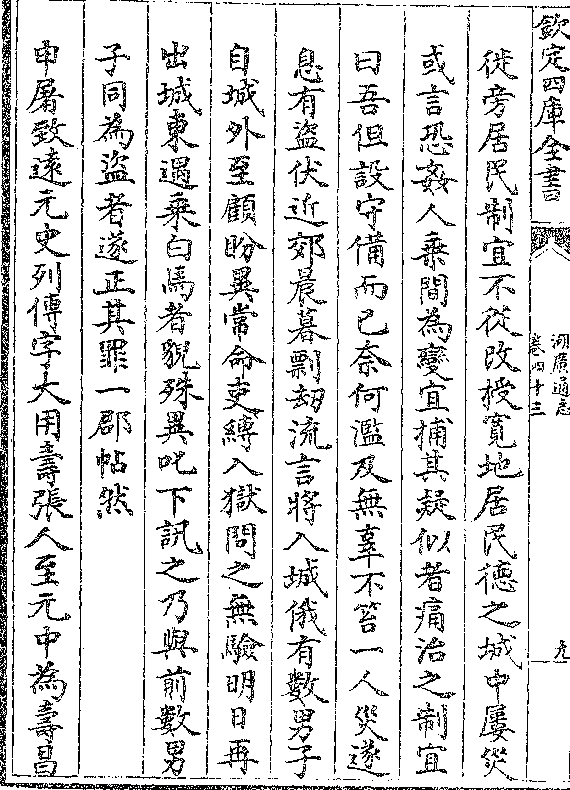 欽定四庫全書
湖廣通志
卷四十三
九
徙旁居民制宜不從改授寛地居民德之城中屢災
或言恐姦人乗間為變宜捕其疑似者痛治之制宜
曰吾但設守備而已奈何濫及無辜不笞一人災遂
息有盜伏近郊晨暮剽刼流言將入城俄有數男子
自城外至顧盼異常命吏縛入獄問之無驗明日再
出城東遇乗白馬者貌殊異叱下訊之乃與前數男
子同為盜者遂正其罪一郡帖然
申屠致遠元史列傳字大用壽張人至元中為壽昌